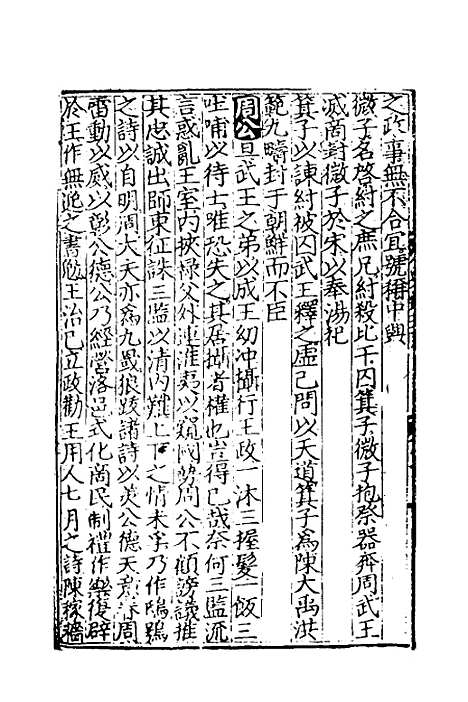 之政事無不合宜號稱中興
微子名啓紂之庶兄紂殺比干囚箕子微子抱祭器奔周武王
滅商封微子於宋以奉湯祀
箕子以諫紂被囚武王釋之虛己問以天道箕子為陳大禹洪
範九疇封于朝鮮而不臣
周公旦武王之弟以成王幼冲攝行王政一沐三握髮一飯三
吐哺以待士唯恐失之其居攝者權也豈得已哉奈何三監流
言惑亂王室内挾祿父外連淮夷以窺國勢周公不顧謗議推
其忠誠出師東征誅三監以清内難上下之情未孚乃作鴟鴞
之詩以自明周大夫亦為九罭狼跋諸詩以美公德天意眷周
雷動以威以彰公德公乃經營洛邑式化商民制禮作樂復辟
於王作無逸之書勉王治己立政勸王用人七月之詩陳稼穡